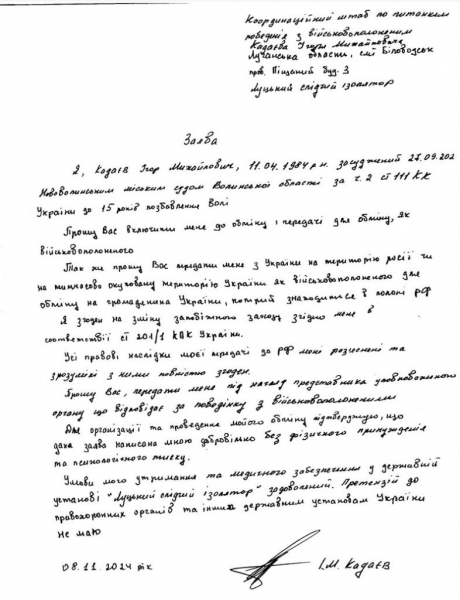 Координаційний штаб по питанням
поводнія з військовополоненим
Кадаєва Ігоря Михайловича
Луганська область, смт Біловодськ
пров. Піщаний буд. 3
Луцький слідчий ізолятор
Заява
Я, Кадаєв Ігор Михайлович, 11.04.1984 р.н. засуджений 27.09.202
Нововолинським міським судом Волинської області за ч. 2 ст 111 КК
України до 15 років позбавлення волі
Прошу Вас включити мене до обміну і передачі для обміну, як
військовополоненого
Так же прошу Вас передати мене з України на територію росії чи
на тимчасово окуповану територію України як військовополоненого для
обміну на громадянина України, котрий знаходиться в полоні РФ
Я згоден на зміну запобіжного заходу згідно мене в
соответствії ст 201/1 КПК України.
Усі правові наслідки моєї передачі до РФ мені роз'яснені та
зрозумілі з ними повністю згоден.
Прошу Вас, передати мене під нагляд представника уповноваженого
органу що відповідає за поводінку з військовополоненими
Для організації та проведення мойого обміну підтверджую, що
дана заява написана мною добровільно без фізичного принуждения
та психологічного тиску.
Умови мого утримання та медичного забезпечення у державній
установі "Луцький слідчий ізолятор" задоволений. Претензій до
правохоронних органів та інших державним установам України
не маю
08.11.2024 рік
І.М. Кадаєв